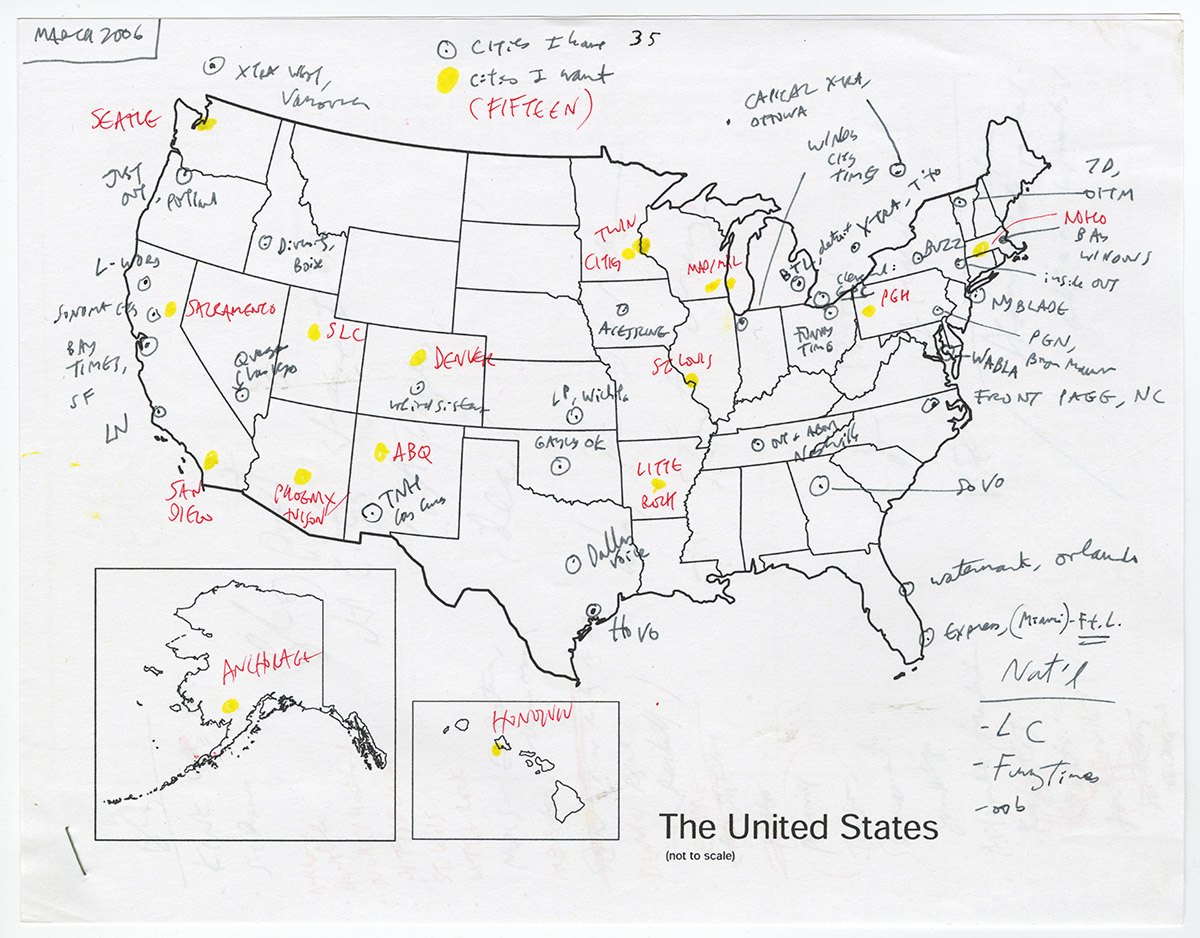 MARCH 2006
Cities I have 35
cities I want
(FIFTEEN)
XTRA WEST,
Vancouver
CAPITAL XTRA,
OTTOWA
WINDY
CITY
TIMES
SEATLE
JUST
OUT,
Portland
Diversity,
Boise
L-WORD
SONOMA
SACRAMENTO
BAY
TIMES,
SF
LN
SAN
DIEGO
SLC
DENVER
weird sisters
QVegas
Las Vegas
PHOENIX/
TUSON
ABQ
TNH
Las Cruces
TWIN
CITIES
MAD/MIL
ACESTRING
ST LOUIS
LP, Wichita
GAYLY OK
LITTE
ROCK
Dallas
Voice
HOVO
BTL, detroit
XTRA, T'to
Cleveland:
GPC
FUNNY
TIMES
PGH
BUZZ
7D,
OITM
NOHO
BAY
WINDOWS
inside OUT
NY BLADE
PGN,
Bryn Mawr
WABLA
FRONT PAGE, NC
OUT + ABOUT
Nashville
SOVO
watermark, orlando
Express, (Miami)-Ft.L.
Nat'l
- LC
- Funny Times
- oob
ANCHORAGE
HONOLULU
The United States
(not to scale)